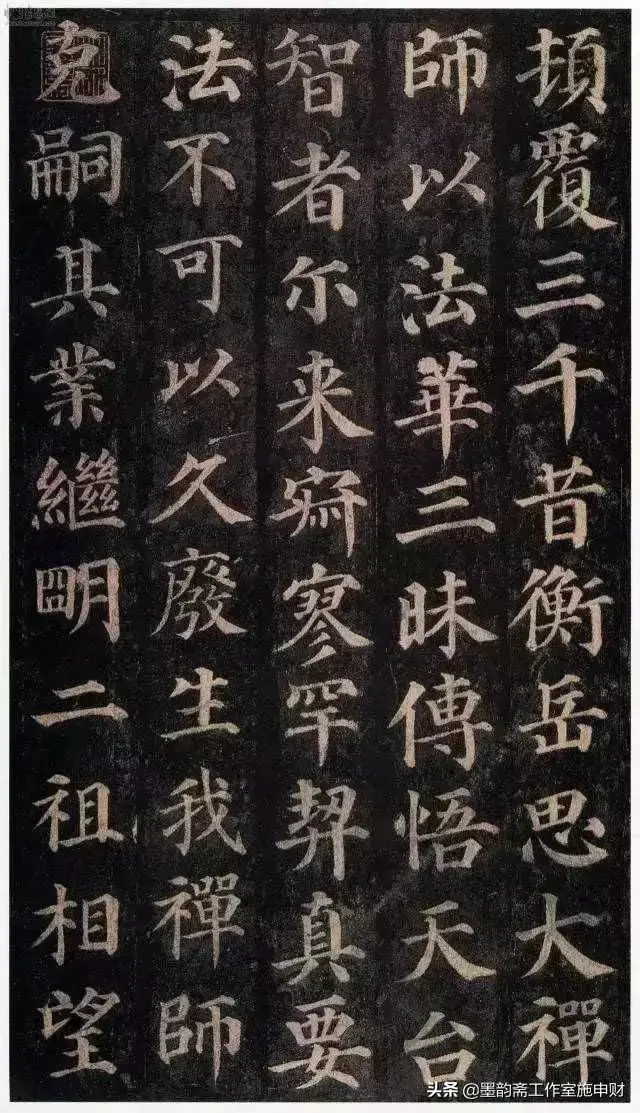 頓覆三千昔衡岳思大禪
師以法華三昧傳悟天台
智者尔来寂寥罕契真要
法不可以久廢生我禪師
克嗣其業繼明二祖相望
头条 @墨韵斋工作室施申财